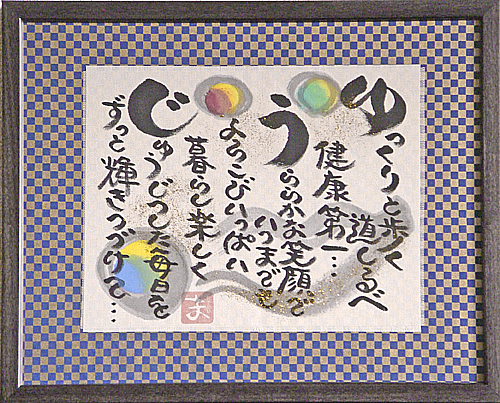 ゆっくりと歩く
道しるべ
健康第一…
うららかな笑顔で
いつまでも
よろこびいっぱい
暮らし楽しく
じゅうじつした毎日を
ずっと輝きつづけて…